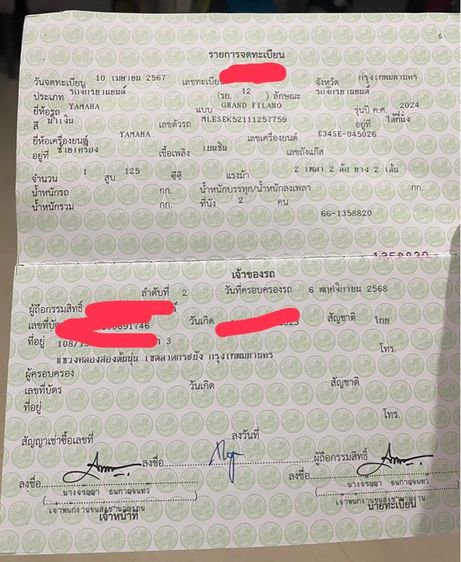 6
รายการจดทะเบียน
วันจดทะเบียน 10 เมษายน 2567 เลขทะเบียน จังหวัด กรุงเทพมหานคร
ประเภท รถจักรยานยนต์ (รย. 12 ) ลักษณะ รถจักรยานยนต์
ยี่ห้อรถ YAMAHA แบบ GRAND FILANO รุ่นปี ค.ศ. 2024
สี น้ำเงิน เลขตัวรถ MLESEK52111257759 อยู่ที่ ใต้ที่นั่ง
ยี่ห้อเครื่องยนต์ YAMAHA เลขเครื่องยนต์ E34SE-045026
อยู่ที่ ข้างเครื่อง เชื้อเพลิง เบนซิน เลขถังแก๊ส
จำนวน 1 สูบ 125 ซีซี แรงม้า 2 เพลา 2 ล้อ ยาง 2 เส้น
น้ำหนักรถ กก. น้ำหนักบรรทุก/น้ำหนักลงเพลา กก.
น้ำหนักรวม กก. ที่นั่ง 2 คน
66-1358820
1358820
เจ้าของรถ
ลำดับที่ 2 วันที่ครอบครองรถ 6 พฤศจิกายน 2568
ผู้ถือกรรมสิทธิ์
เลขที่บัตร วันเกิด สัญชาติ ไทย
ที่อยู่ 3 โทร.
แขวงคลองสองต้นนุ่น เขตลาดกระบัง กรุงเทพมหานคร
ผู้ครอบครอง
เลขที่บัตร วันเกิด สัญชาติ
ที่อยู่ โทร.
สัญญาเช่าซื้อเลขที่ ลงวันที่
ลงชื่อ ลงชื่อ ผู้ถือกรรมสิทธิ์
ลงชื่อ
เจ้าหน้าที่ นายทะเบียน